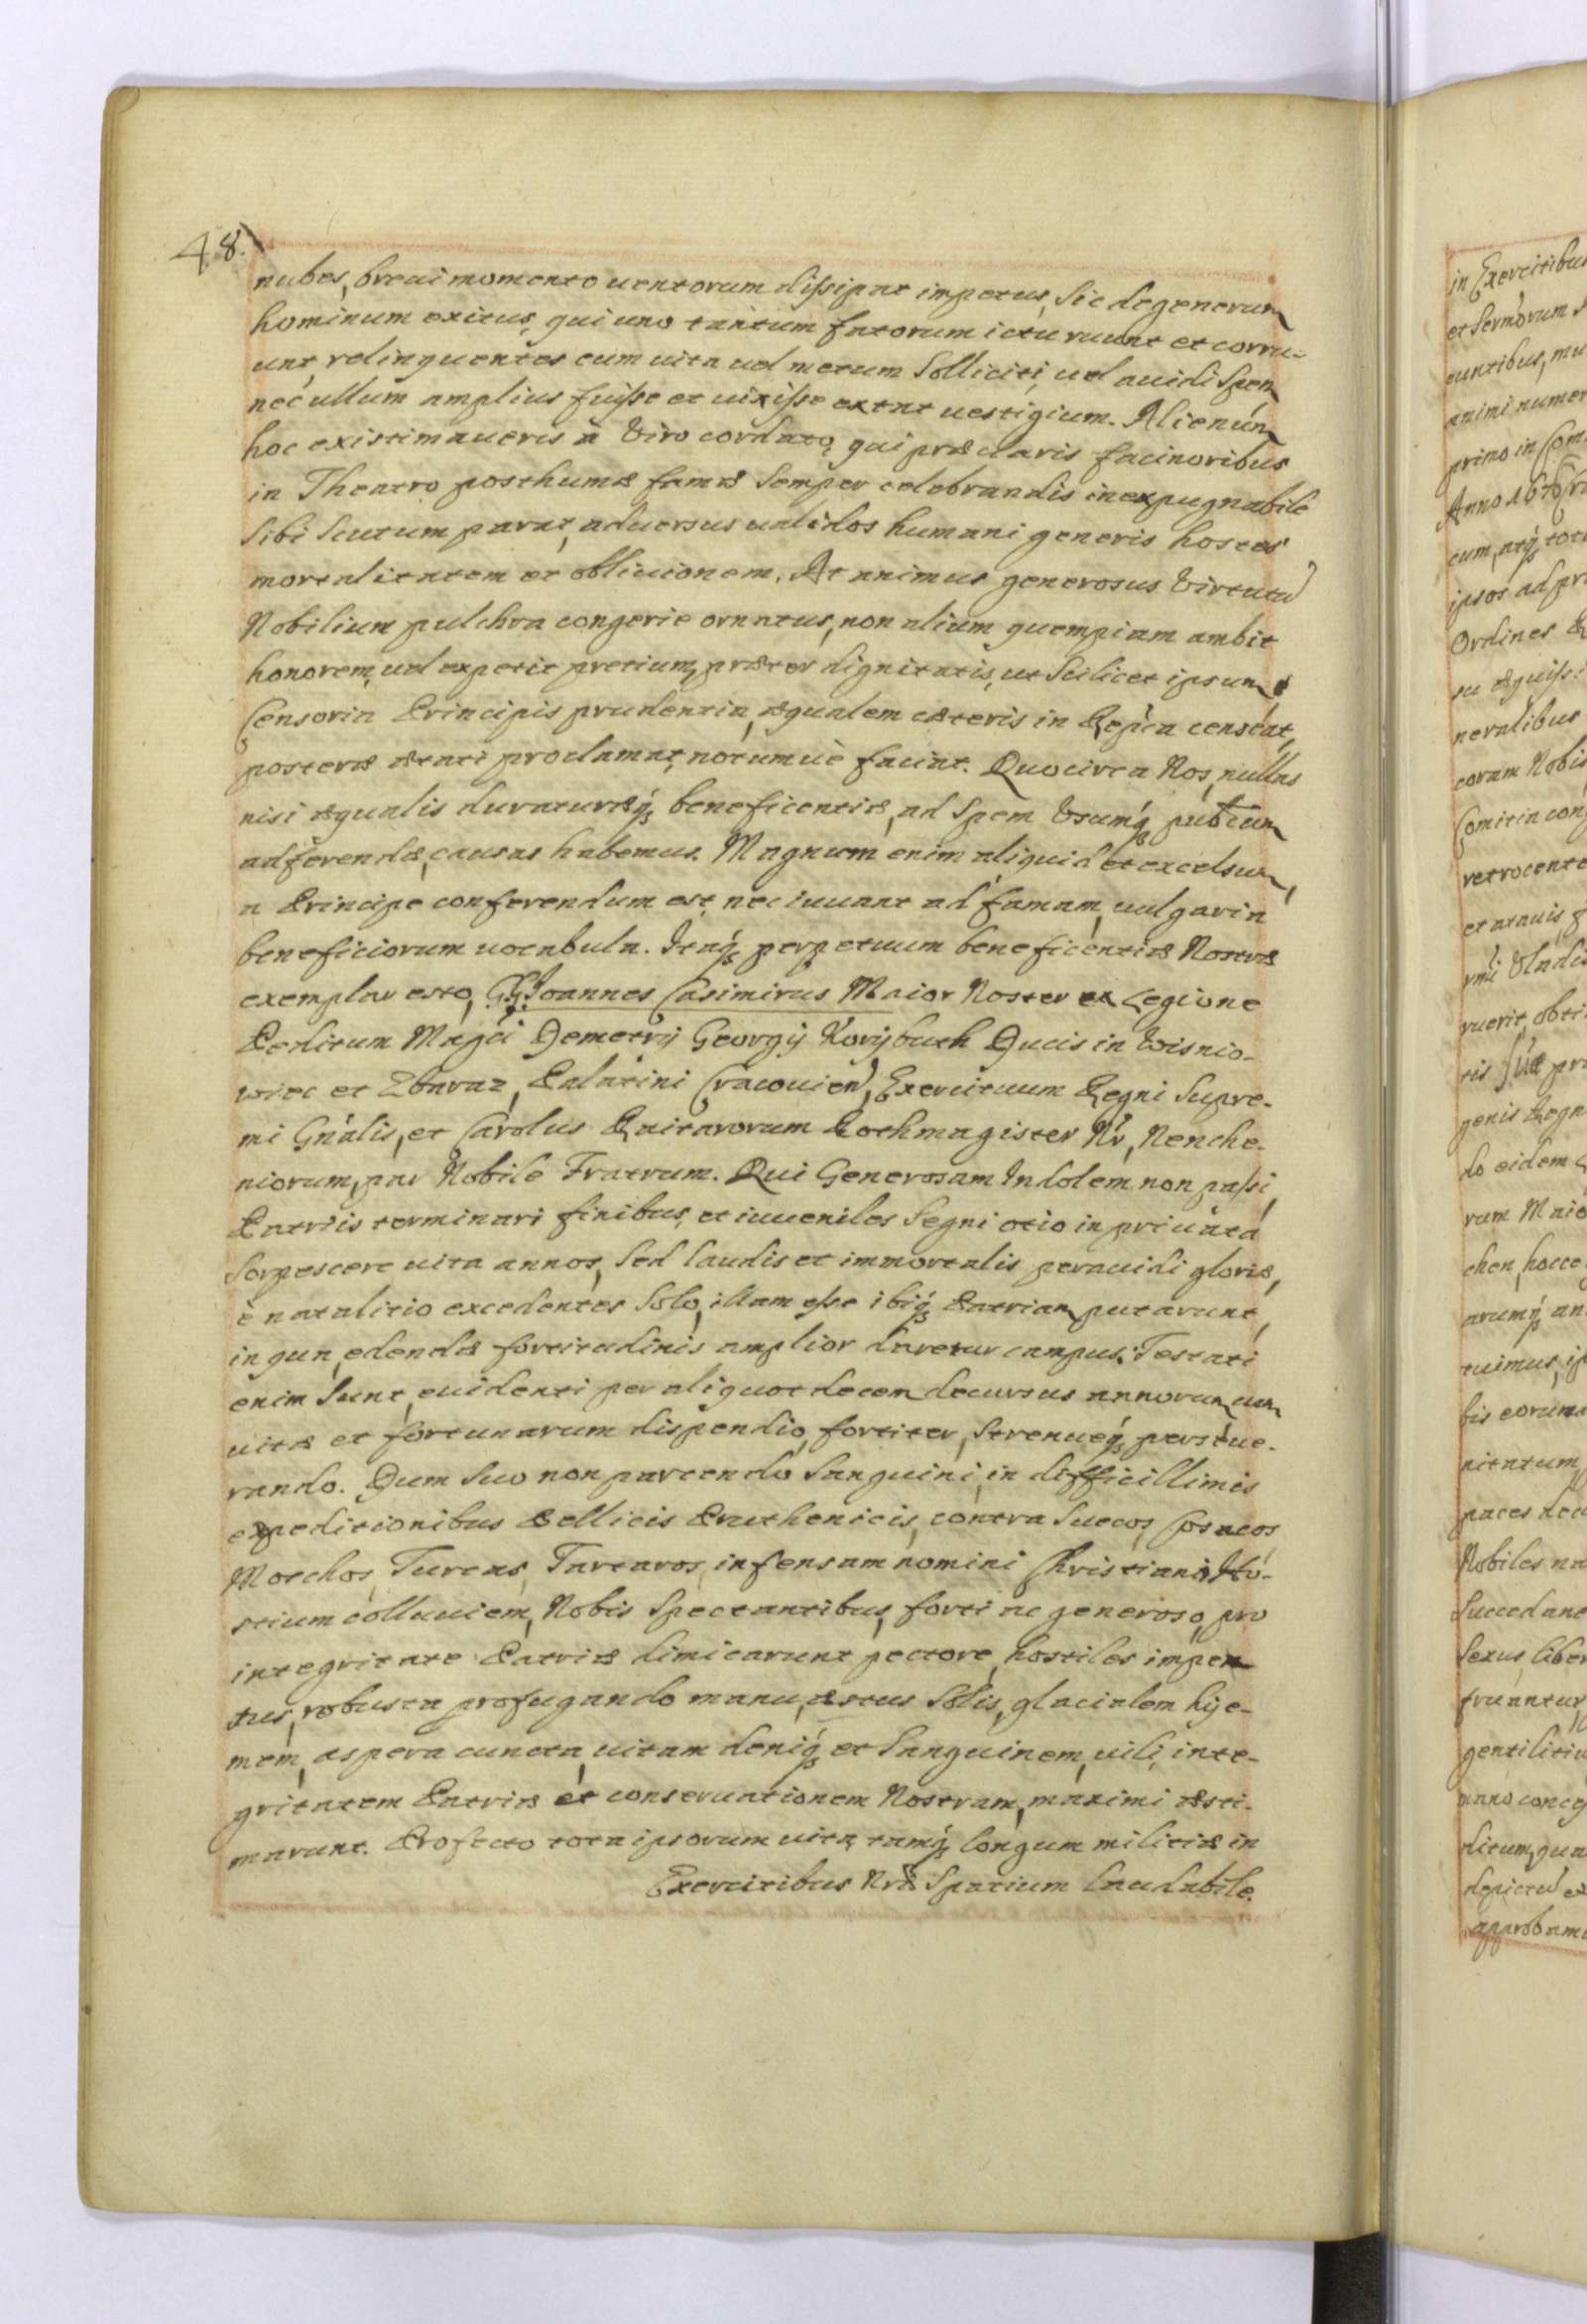 48.
nubes, breui momento uentorum dissipat impetus, Sic degenerum
hominum exitus, qui uno tantum fatorum ictu ruunt et corru-
unt, relinquentes cum uita uel metum Solliciti, uel auidi Spem
nec ullum amplius fuisse et uixisse extat uestigium. Alienum
hoc existimaueris à Viro cordato, qui præclaris facinoribus
in Theatro posthumæ famæ Semper celebrandis inexpugnabile
Sibi Scutum parat, aduersus ualidos humani generis hostes
mortalitatem et obliuionem. At animus generosus Virtutũ
Nobilium pulchra congerie ornatus, non alium quempiam ambit
honorem, uel expetit pretium, præter dignitatis, ut Scilicet ipsum
Censoria Principis prudentia, æqualem cæteris in Repca censeat,
posteræ ætati proclamat, notumuè faciat. Quocirca Nos, nullas
nisi æqualis duraturæq beneficentiæ, ad Spem Vsumq publicum
adferendæ, causas habemus. Magnum enim aliquid et excelsum,
a Principe conferendum est, nec iuuant ad famam, uulgaria
beneficiorum uocabula. Itaq perpetuum beneficentiæ Nostræ
exemplar esto, GG. Ioannes Casimirus Maior Noster ex Legione
Peditum Magci Demetrij Georgij Korybuth Ducis in Wisnio-
wiec et Zbaraz, Palatini Cracouien, Exercituum Regni Supre-
mi Gnalis, et Carolus Raitarorum Rothmagister Nr, Nenche-
niorum, par Nobile Fratrum. Qui Generosam Indolem non passi,
Patriis terminari finibus, et iuueniles Segni otio in priuata
Sorpescere uita annos, Sed laudis et immortalis perauidi gloriæ,
è natalitio excedentes Solo, illam esse ibiq Patriam putarunt,
in qua, edendæ fortitudinis amplior daretur campus. Testati
enim Sunt, euidenti per aliquot decem decursus annorum cum
uitæ et fortunarum dispendio, fortiter, Strenueq perseue-
rando. Dum Suo non parcendo Sanguini, in difficillimis
expeditionibus Bellicis Pruthenicis, contra Suecos, Cosacos,
Moschos, Turcas, Tartaros, infensam nomini Christiano Ho-
stium colluuiem, Nobis Spectantibus, forti ac generoso, pro
integritate Patriæ dimicarunt pectore, hostiles impe
tus, robusta profugando manu, æstus Solis, glacialem hye-
mem, aspera cuncta, uitam deniq et Sanguinem, uili, inte-
gritatem Patriæ et conseruationem Nostram, maximi æsti-
marunt. Profecto tota ipsorum uita, tamq longum militiæ in
Exercitibus Nris Spatium laudabile.
in Exercitibus
et Sermorum
euntibus, mu
animi numer
primo in Com
Anno 1676
cum, atq toti
ipsos ad pr
Ordines
su æquiss
neralibus
coram Nobis
Comitia cong
retrocente
et atauis
Vladis
ruerit, obti
tis pr
genis Regn
do eidem
rum Maio
chen, hocce
arumq an
tuimus, ip
bis eorum
nitatum
paces dec
Nobiles na
Succedane
Sexus, liber
fruantur
gentilitiu
manu conces
ditum, qua
depictũ ex
approbam